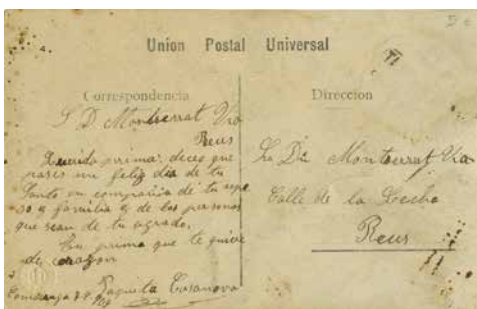 Union Postal Universal
Correspondencia
S D. Montserrat Via
Reus
Querida prima: deceo que
pases un feliz dia de tu
Santo en compañia de tu espo
so y familia y de las personas
que sean de tu agrado.
Tu prima que te quiere
de corazon
Paquita Casanova
Direccion
Sra Dª Montserrat Via
Calle de la
Reus